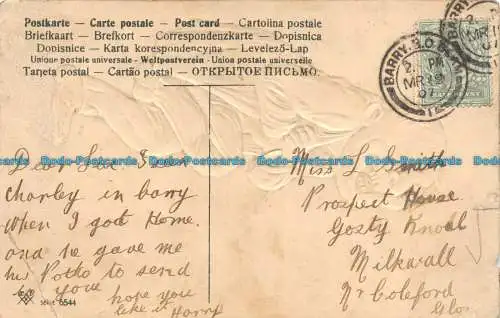 Postkarte — Carte postale — Post card — Cartolina postale
Briefkaart — Brefkort — Correspondenzkarte — Dopisnica
Dopisnice — Karta korespondencyjna — Levelező-Lap
Unione postale universale - Weltpostverein - Union postale universelle
Tarjeta postal — Cartão postal — ОТКРЫТОЕ ПИСЬМО.
BARRY.S.O
2. PM
MR 19
07
BARRY
MR 19
07
Dear Sir I seen
Charley in barry
When I got Home.
and he gave me
his Photo to send
to you hope you
like it Harry
6544
Miss L Smith
Prospect House
Gosty Knoll
Milkwall
Nr Coleford
Glos